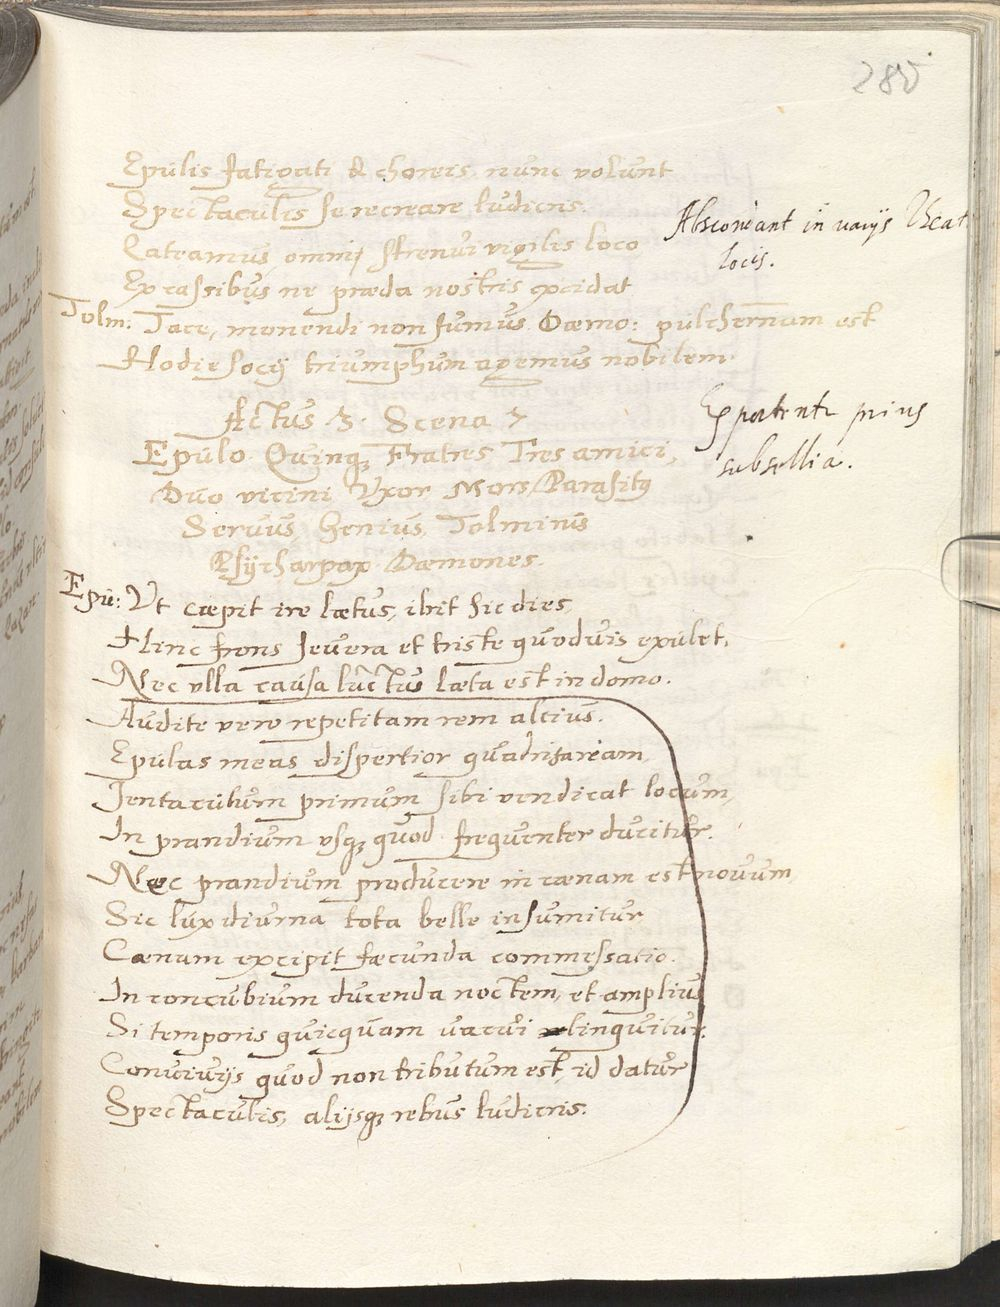 285
Epulis fatigati & choreis, nunc volunt
Spectaculis se recreare ludicris.
Latramus, omni strenui vigiles loco
Ex cassibus ne præda nostris excidat
Abscondant in varijs Theat.
locis.
Tolm: Tace, monendi non sumus Dæmo: pulcherrimum est
Hodie socij triumphum agemus nobilem.
Actus 3. Scena 7
Epulo Quinq; Fratres Tres amici,
Duo vicini Vxor Mors, Parasitus
Servus, Genius, Tolminus
Psycharpax Dæmones.
prius
subsellia.
Epu: Vt cæpit ire lætus, ibit sic dies,
Hinc frons severa et triste quoduis exulet,
Nec ulla causa luctus læta est in domo.
Audite vero repetitam rem altius.
Epulas meas dispertior quadrifariam,
Jentaculum primum sibi vendicat locum,
In prandium usq; quod frequenter ducitur.
Nec prandium producere in cænam est novum,
Sic lux diurna tota belle insumitur
Cænam excipit fæcunda commessatio.
In concubium ducenda noctem, et amplius
Si temporis quicquam vacui linquitur.
Conviuijs quod non tributum est, id datur
Spectaculis, alijsq; rebus ludicris.